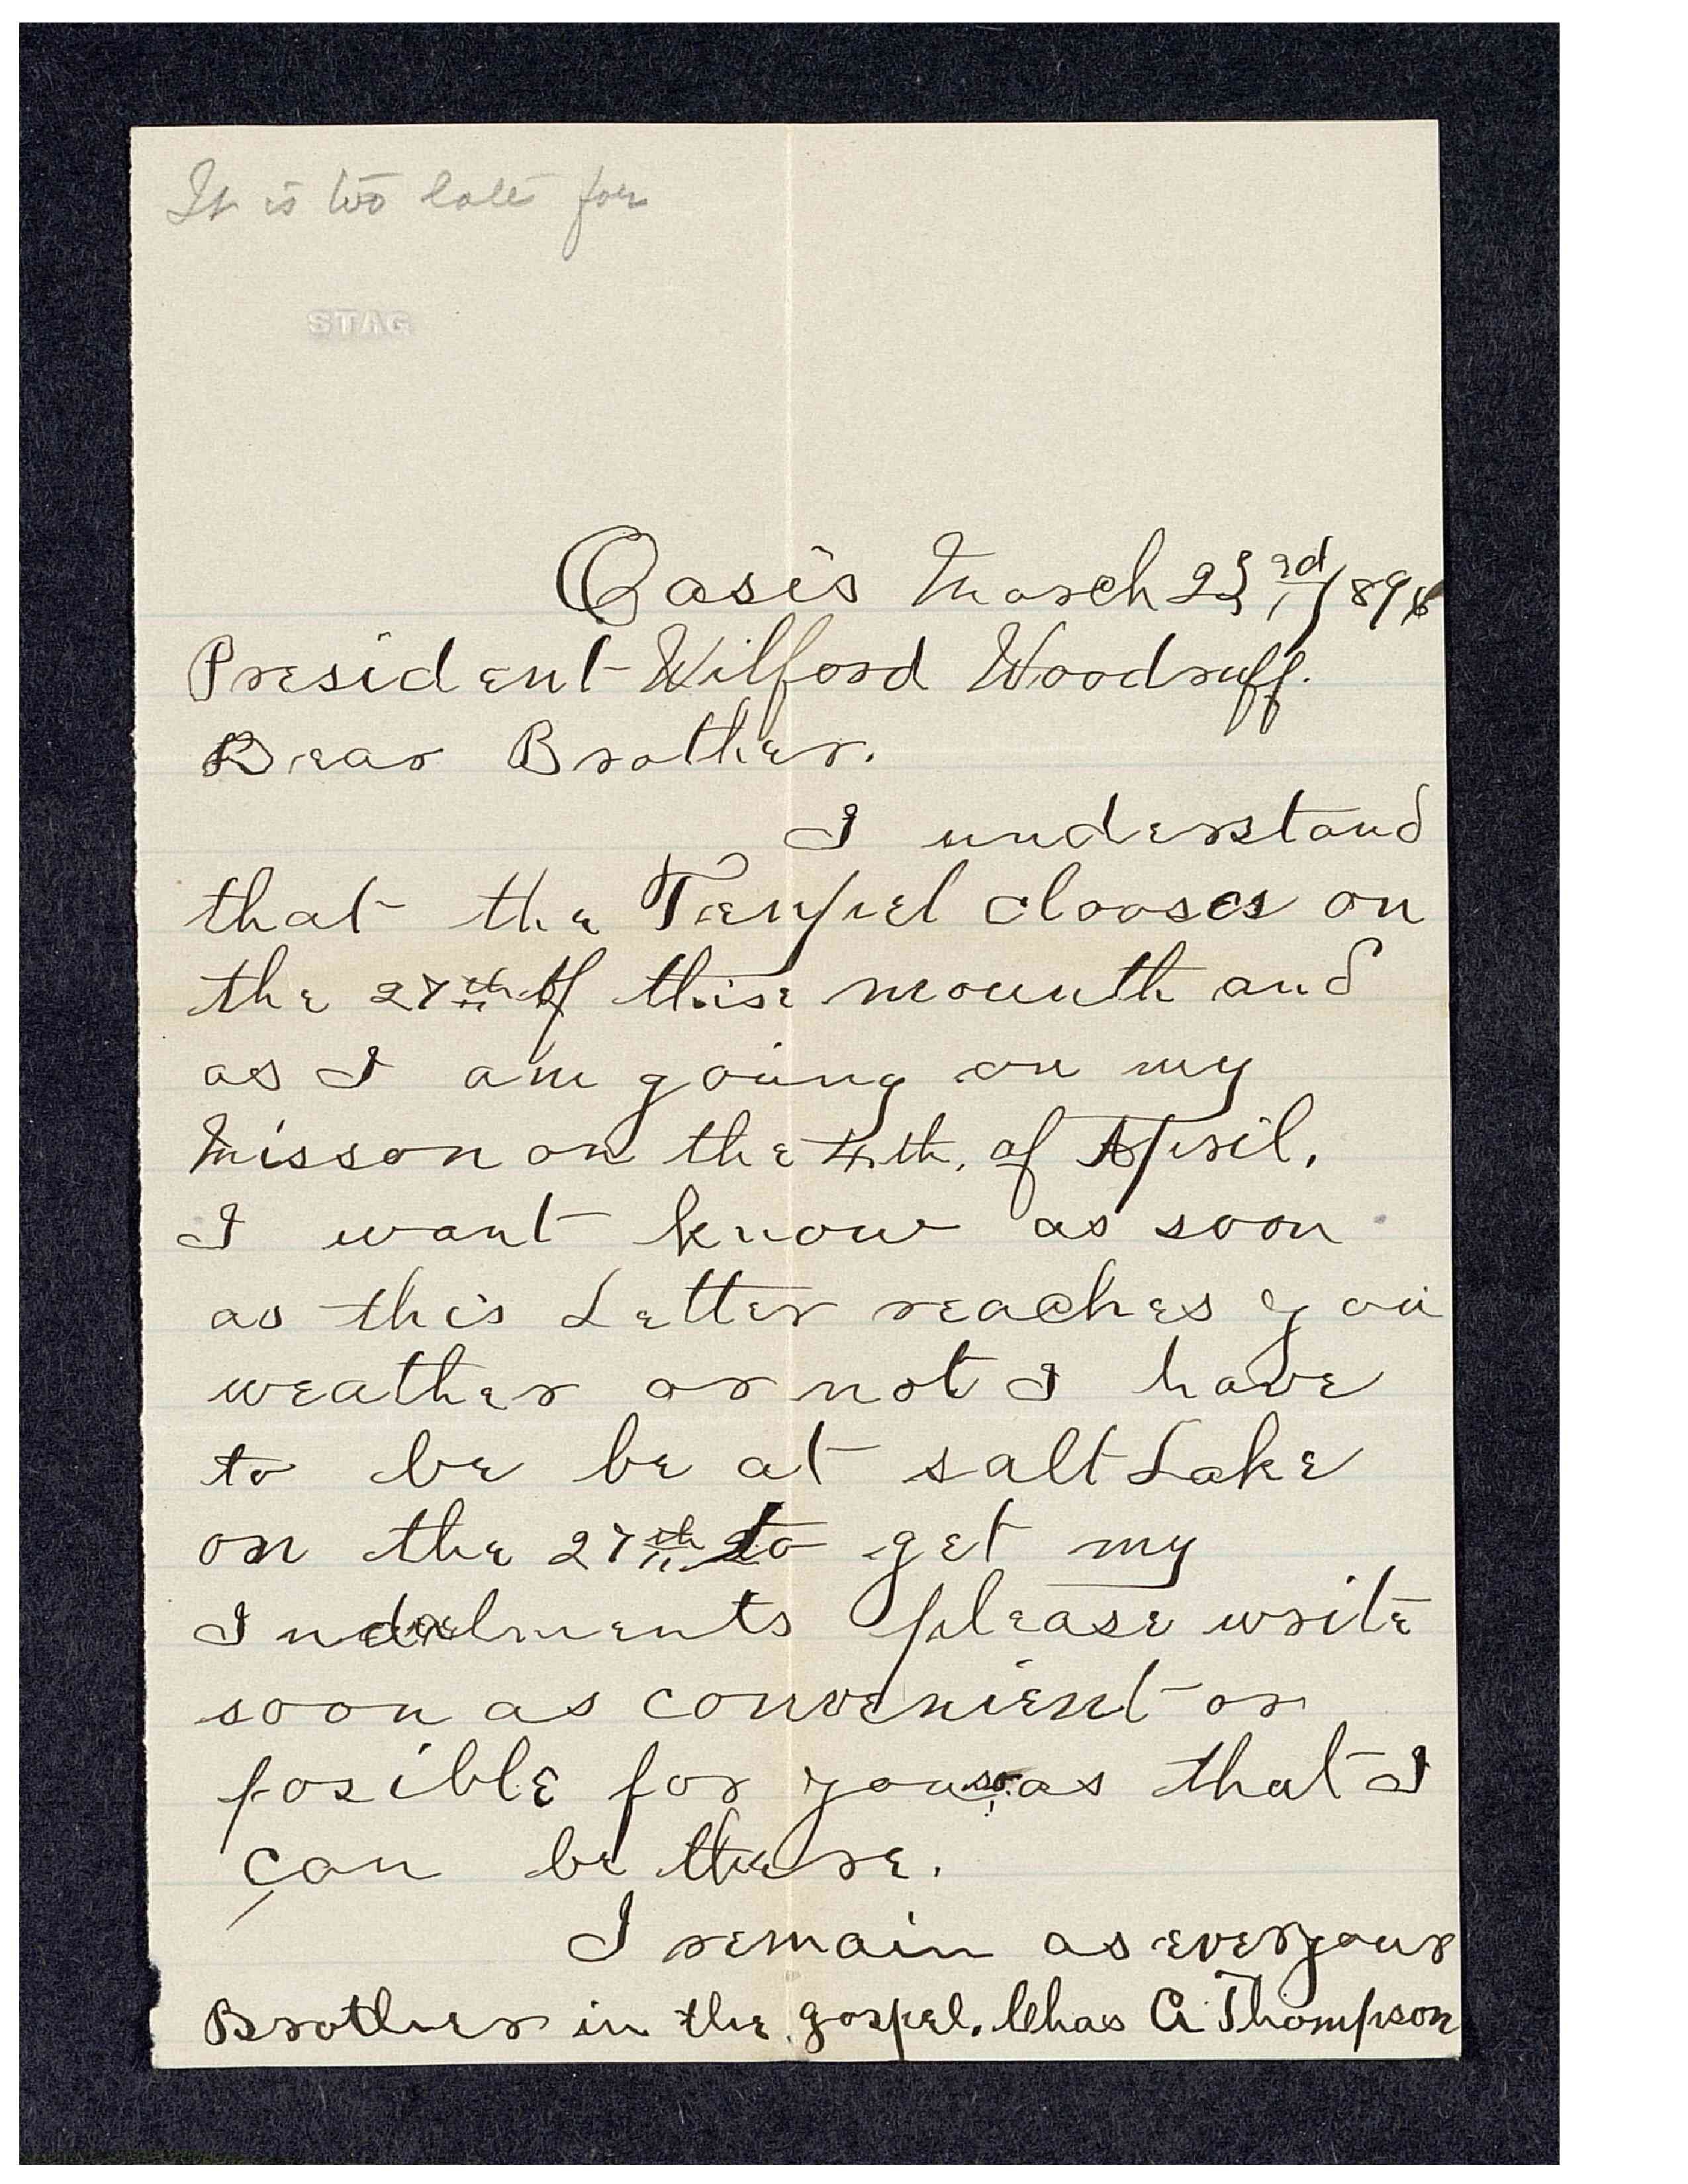 It is too late for
STAG
Oasis March 23rd, 1896
President Wilford Woodruff.
Dear Brother.
I understand
that the Tempel clooses on
the 27th of this mounth and
as I am going on my
Misson on the 4th. of April.
I want know as soon
as this Letter reaches you
weather or not I have
to be be at salt Lake
on the 27th to get my
please write
soon as convenient or
posible for you so as that I
can be there.
I remain as ever your
Brother in the gospel. Chas A Thompson